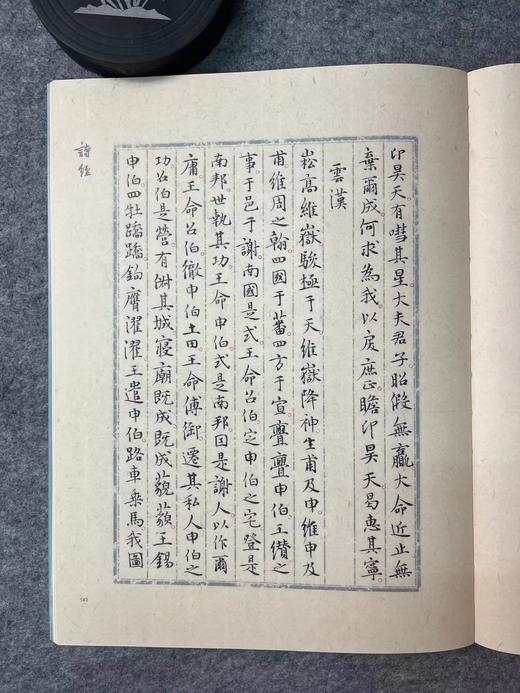 卬昊天有嘒其星大夫君子昭假無贏大命近止無
棄爾成何求為我以戾庶正瞻卬昊天曷惠其寧
雲漢
崧高維嶽駿極于天維嶽降神生甫及申維申及
甫維周之翰四國于蕃四方于宣亹亹申伯王纘之
事于邑于謝南國是式王命召伯定申伯之宅登是
南邦世執其功王命申伯式是南邦因是謝人以作爾
庸王命召伯徹申伯土田王命傅御遷其私人申伯之
功召伯是營有俶其城寢廟既成既成藐藐王錫
申伯四牡蹻蹻鉤膺濯濯王遣申伯路車乘馬我圖
詩經
143